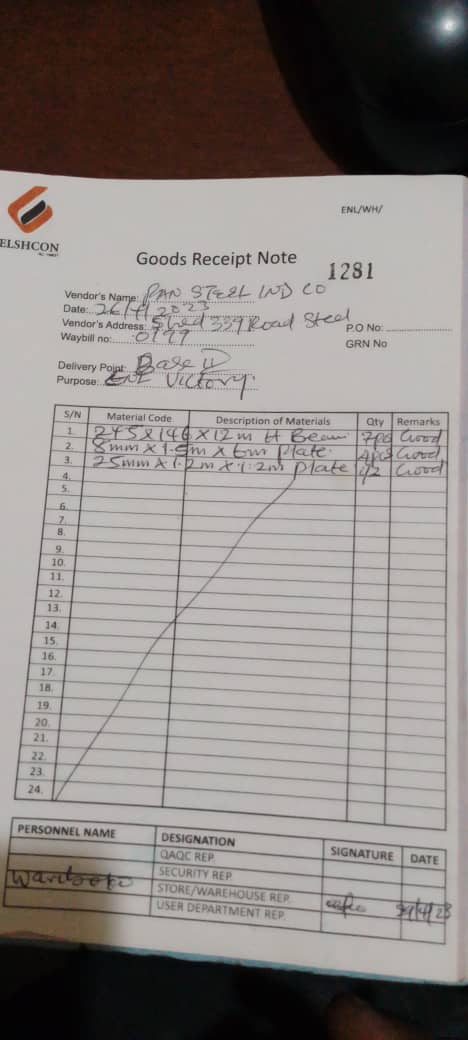 ENL/WH/
ELSHCON
Goods Receipt Note
1281
Vendor's Name: PAN STEEL IND CO
Date: 26/4/2023
Vendor's Address: Shed 339 Road Steel
P.O No:
Waybill no: 0199
GRN No
Delivery Point: Base II
Purpose: ENL Victory.
S/N Material Code Description of Materials Qty Remarks
1. 245 x 146 x 12m H Beam 7pc Good
2. 8mm x 1.5m x 6m plate. 4pcs Good
3. 25mm x 1.2m x 1.2m plate 1/2 Good
4.
5.
6.
7.
8.
9.
10.
11.
12.
13.
14.
15.
16.
17.
18.
19.
20.
21.
22.
23.
24.
PERSONNEL NAME DESIGNATION SIGNATURE DATE
QAQC REP.
SECURITY REP.
STORE/WAREHOUSE REP.
USER DEPARTMENT REP.